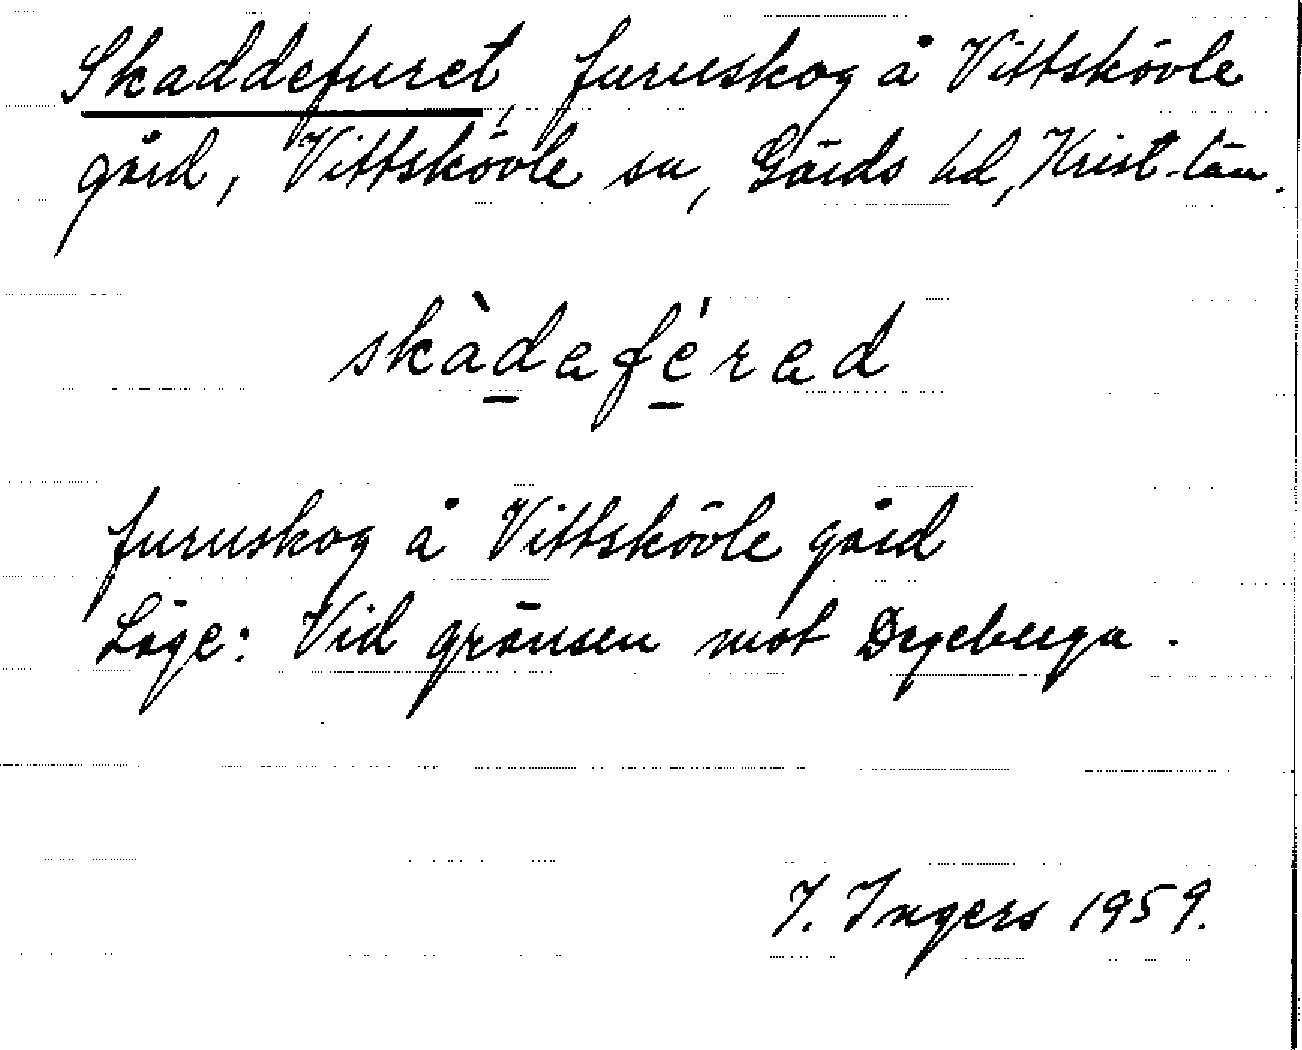 Skaddefuret, furuskog å Vittskövle
gård, Vittskövle sn, Gärds hd, Krist-län.
skàdaférad
furuskog å Vittskövle gård
Läge: Vid gränsen mot Degeberga.
I. Ingers 1959.